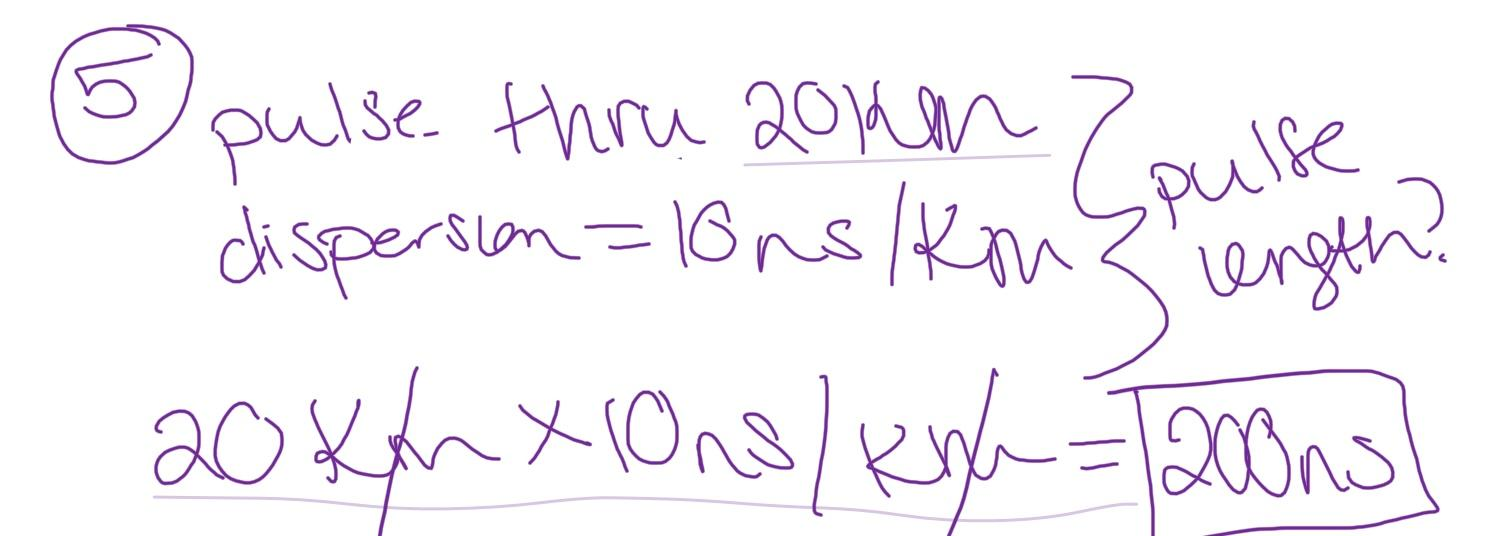 5 pulse thru 20Km
dispersion = 10ns/Km
pulse length?
20 Km × 10ns/km = 200ns